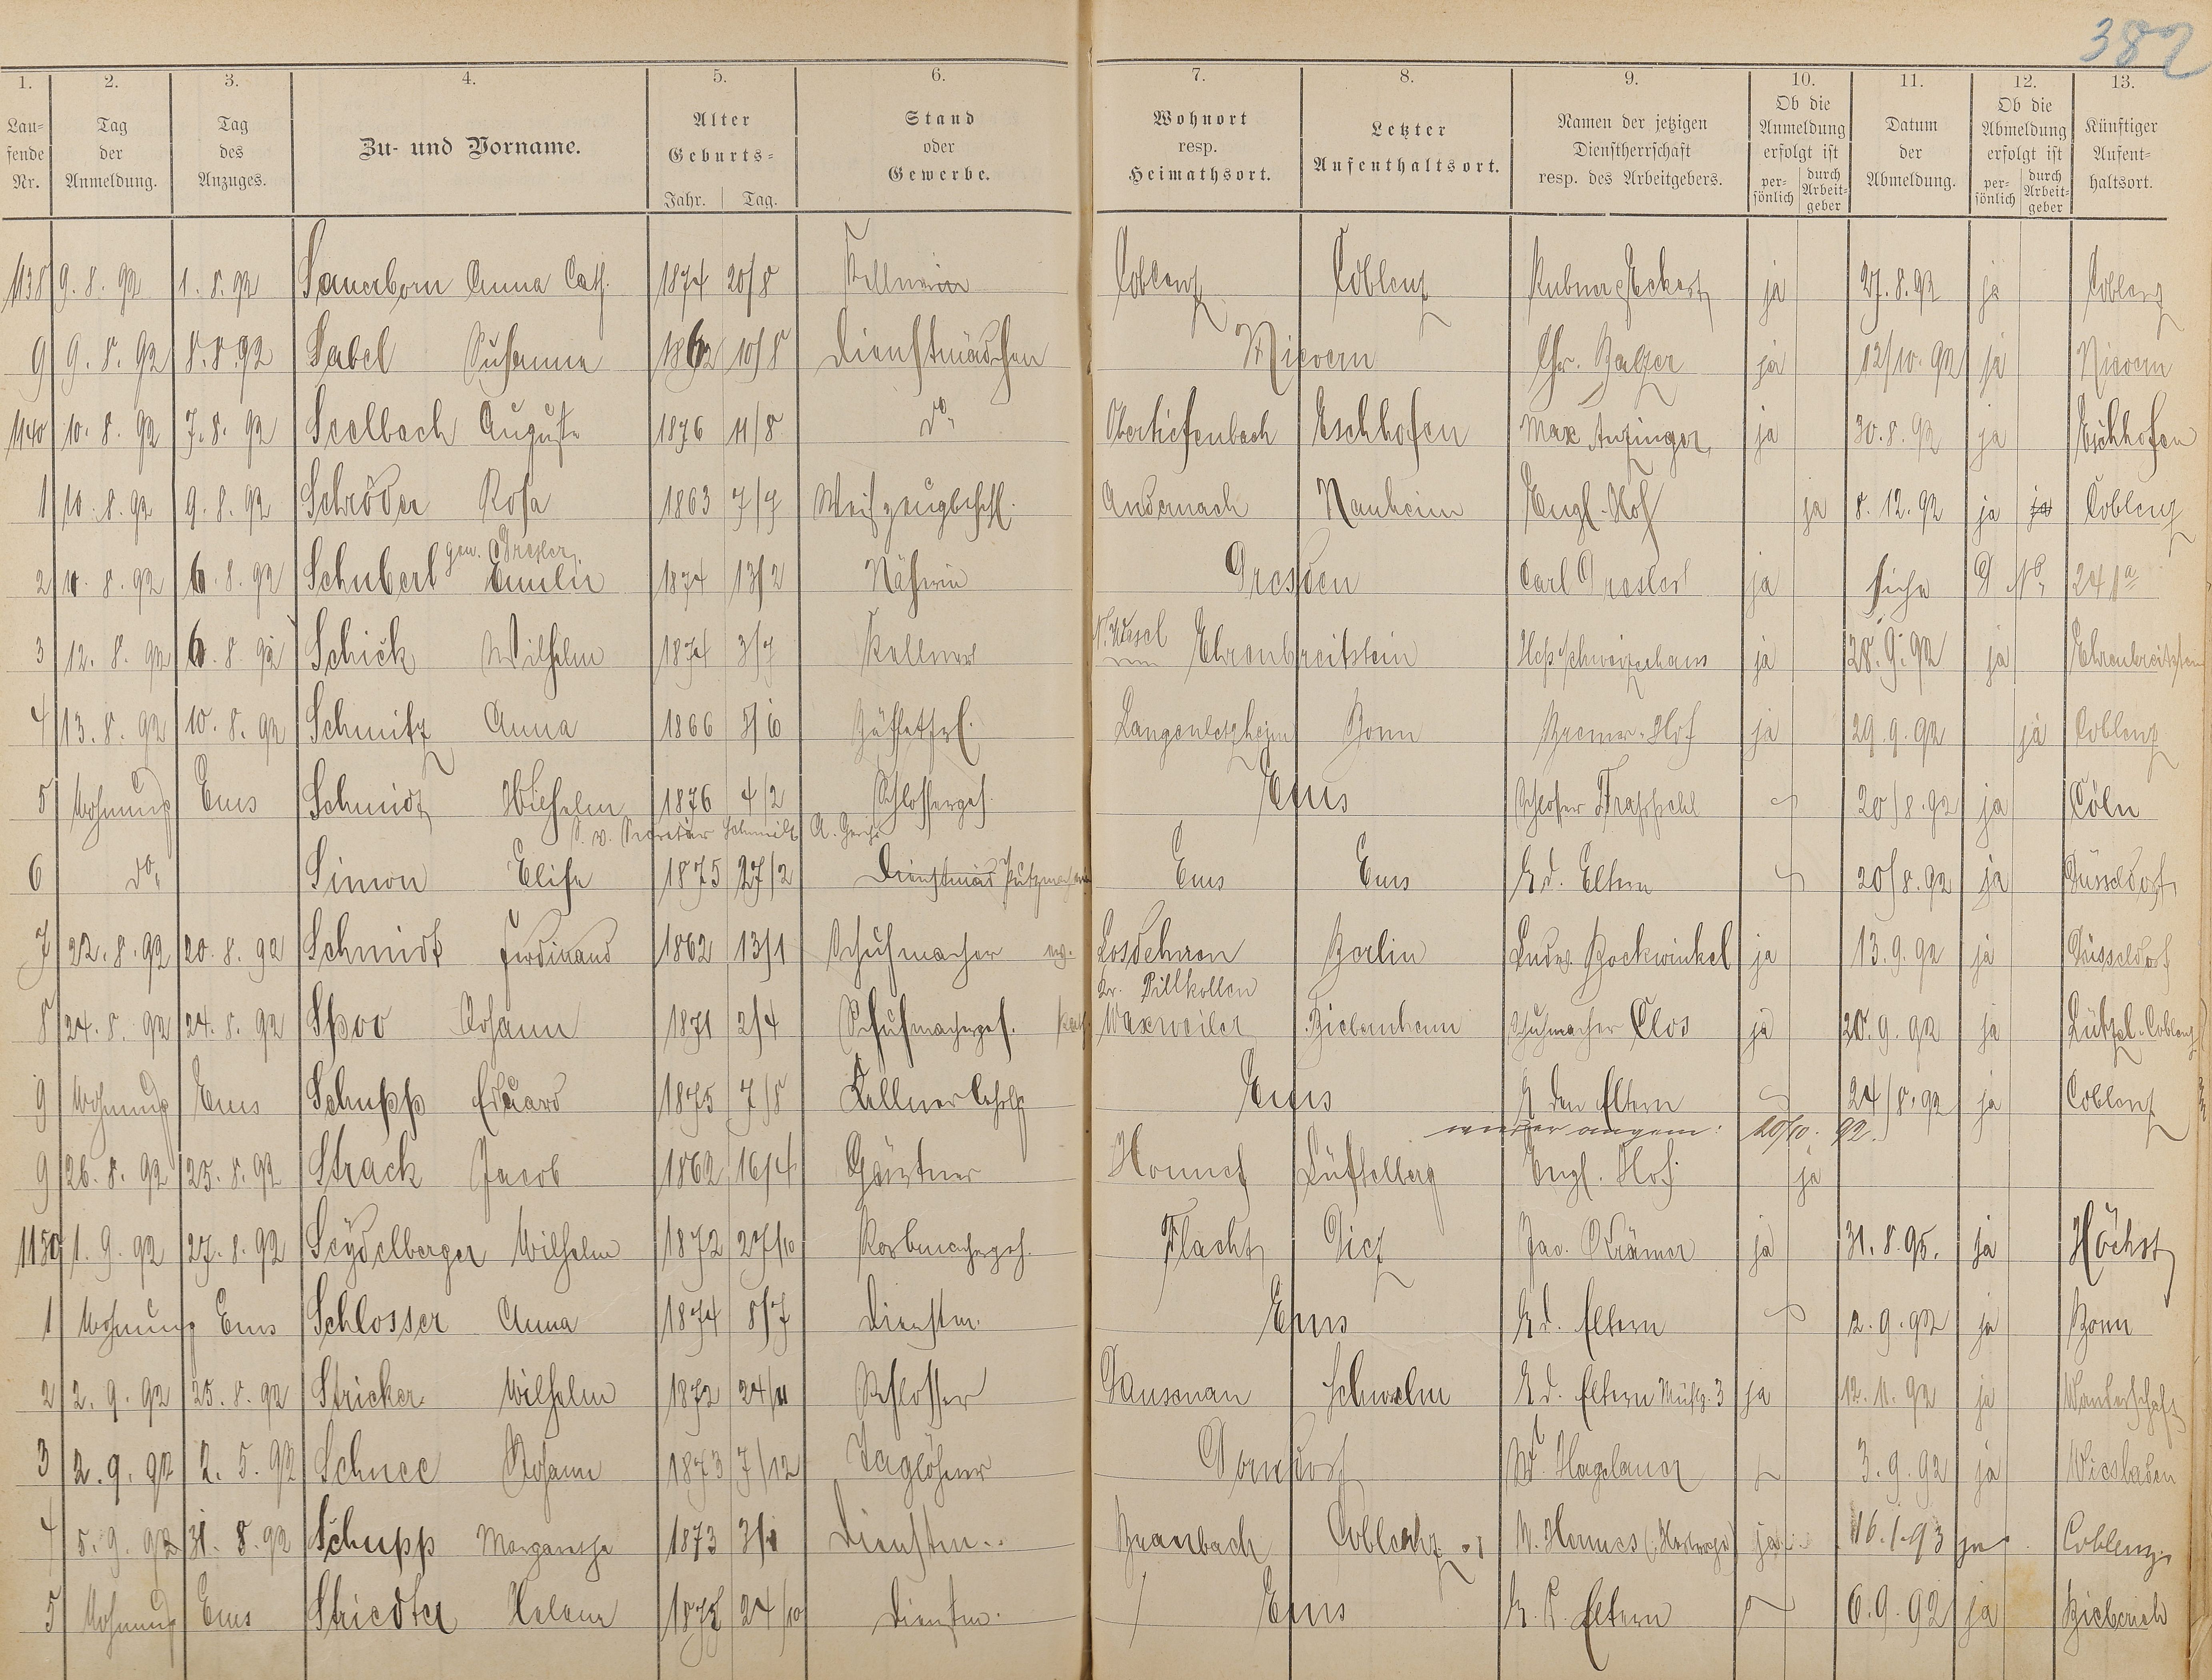 382
1. 2. 3. 4. 5. 6. 7. 8. 9. 10. 11. 12. 13.
Laufende Nr. Tag der Anmeldung. Tag des Anzuges. Zu- und Vorname. Alter Geburts- Jahr. Tag. Stand oder Gewerbe. Wohnort resp. Heimathsort. Letzter Aufenthaltsort. Namen der jetzigen Dienstherrschaft resp. des Arbeitgebers. Ob die Anmeldung erfolgt ist persönlich durch Arbeitgeber Datum der Abmeldung. Ob die Abmeldung erfolgt ist persönlich durch Arbeitgeber Künftiger Aufenthaltsort.
1138 9.8.92 1.8.92 Sauerborn Anna Cath. 1874 20/8 Kellnerin Coblenz Coblenz Eckert ja 27.8.92 ja Coblenz
9 9.8.92 8.8.92 Sabel Susanna 1862 10/8 Dienstmädchen Nievern Chr. Balzer ja 12/10.92 ja Nievern
1140 10.8.92 7.8.92 Seelbach Auguste 1876 11/8 do Obertiefenbach Eschhofen Max Anzinger ja 30.8.92 ja Eschhofen
1 10.8.92 9.8.92 Schröder Rosa 1863 7/7 Andernach Nauheim Engl. Hof ja 8.12.92 ja ja Coblenz
gen. Gresler
2 10.8.92 6.8.92 Schubert Emilie 1874 13/2 Näherin Dresden Carl ja siehe G No 241a
3 12.8.92 6.8.92 Schick Wilhelm 1874 3/7 Kellner N. Wesel Ehrenbreitstein Hess Schweizerhaus ja 28.9.92 ja Ehrenbreitstein
4 13.8.92 10.8.92 Schmitz Anna 1866 5/10 Büffetfrl. Bonn Bremer-Hof ja 29.9.92 ja Coblenz
5 Wohnung Ems Schmidt Wilhelm 1876 4/2 Schlosserges. Ems Schlosser 20/8.92 ja Cöln
S. v. Secretär Schmidt A. Gericht
6 do Simon Elise 1875 27/2 Dienstmäd Putzmacherin Ems Ems b. d. Eltern 20/8.92 ja Düsseldorf
7 22.8.92 20.8.92 Schmidt Ferdinand 1862 13/1 Schuhmacher ev. Losdehnen Berlin Ludw. Bockwinkel ja 13.9.92 ja Düsseldorf
Kr. Pillkallen
8 24.8.92 24.8.92 Spoo Johann 1871 2/4 Schuhmacherges. kath Waxweiler Schuhmacher Clos ja 20.9.92 ja Lützel-Coblenz
9 Wohnung Ems Schupp Eduard 1875 7/8 Kellnerlehrlg Ems b den Eltern 24/8.92 ja Coblenz
wieder angem: 20/10.92.
9 26.8.92 25.8.92 Strack Jacob 1862 16/4 Gärtner Honnef Lüftelberg Engl. Hof ja
1150 1.9.92 27.8.92 Seydelberger Wilhelm 1872 27/10 Korbmacherges. Flacht Diez Jac. Krämer ja 31.8.95. ja Höchst
1 Wohnung Ems Schlosser Anna 1874 8/7 Dienstm. Ems b. d. Eltern 2.9.92 ja Bonn
2 2.9.92 25.8.92 Stricker Wilhelm 1872 24/11 Schlosser Dausenau Schwelm b. d. Eltern 3 ja 12.11.92 ja Wanderschaft
3 2.9.92 2.5.92 Schnee Johann 1873 7/12 Taglöhner Dorndorf W. Hagelauer 3.9.92 ja Wiesbaden
4 5.9.92 31.8.92 Schupp Margaretha 1873 3/1 Dienstm. Braubach Coblenz W. Hermes ja 16.1.93 ja Coblenz
5 Wohnung Ems Striedter Helene 1875 24/10 Dienstm. Ems b. d. Eltern 6.9.92 ja Bieberich